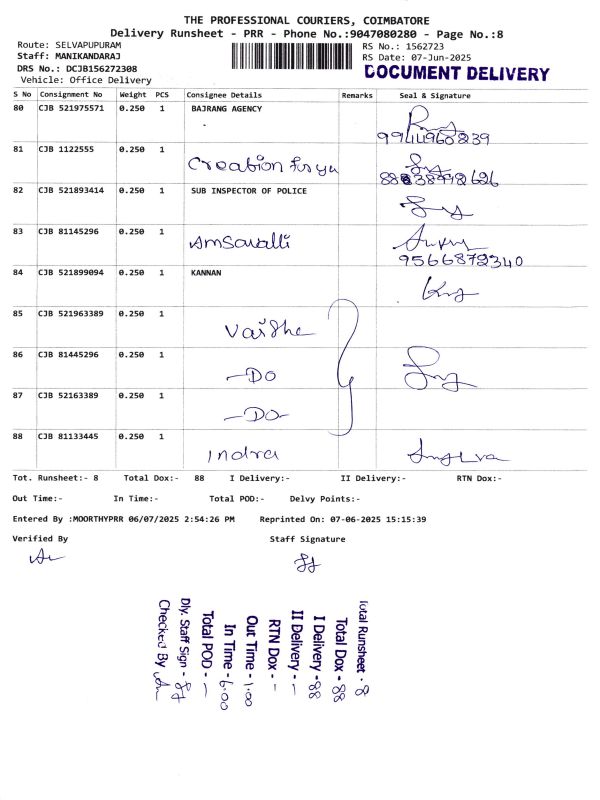 THE PROFESSIONAL COURIERS, COIMBATORE
Delivery Runsheet - PRR - Phone No.:9047080280 - Page No.:8
Route: SELVAPUPURAM
Staff: MANIKANDARAJ
DRS No.: DCJB156272308
Vehicle: Office Delivery
RS No.: 1562723
RS Date: 07-Jun-2025
DOCUMENT DELIVERY
S No Consignment No Weight PCS Consignee Details Remarks Seal & Signature
80 CJB 521975571 0.250 1 BAJRANG AGENCY
-
9944960839
81 CJB 1122555 0.250 1 Creation for yu
82 CJB 521893414 0.250 1 SUB INSPECTOR OF POLICE
83 CJB 81145296 0.250 1 Amsavalli
9566872340
84 CJB 521899094 0.250 1 KANNAN
85 CJB 521963389 0.250 1
86 CJB 81445296 0.250 1 -DO
87 CJB 52163389 0.250 1 -DO-
88 CJB 81133445 0.250 1 Indra
Tot. Runsheet:- 8 Total Dox:- 88 I Delivery:- II Delivery:- RTN Dox:-
Out Time:- In Time:- Total POD:- Delvy Points:-
Entered By :MOORTHYPRR 06/07/2025 2:54:26 PM Reprinted On: 07-06-2025 15:15:39
Verified By Staff Signature
Total Runsheet - 8
Total Dox - 88
I Delivery - 88
II Delivery - -
RTN Dox - -
Out Time - 1:00
In Time - 6:00
Total POD - -
Dly. Staff Sign -
Checked By